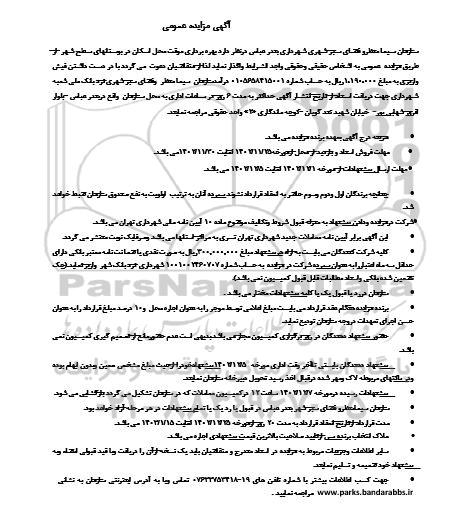 آگهی مزایده عمومی
سازمان سیما منظر و فضای سبز شهری شهرداری بندر عباس درنظر دارد بهره برداری موقت محل اسکان در بوستانهای سطح شهر از
طریق مزایده عمومی به اشخاص حقیقی وحقوقی واجد الشرایط واگذار نماید لذا از متقاضیان دعوت می گردد با در دست داشتن فیش
واریزی به مبلغ ریال به حساب شماره درآمد سازمان سیما منظر وفضای سبز شهری نزد بانک ملی شعبه
شهرداری جهت دریافت اسناد از تاریخ انتشار آگهی حداکثر به مدت روز در ساعات اداری به محل سازمان واقع در بندر عباس -بلوار
خیابان شهید کوچه ماندگاری واحد حقوقی مراجعه نمایند.
هزینه درج آگهی بعهده برنده مزایده می باشد.
مهلت فروش اسناد و بازدید از محل از مورخه لغایت می باشد.
مهلت ارسال پیشنهادات از مورخه لغایت می باشد.
چنانچه برندگان اول ودوم وسوم حاضر به انعقاد قرارداد نشوند سپرده آنان به ترتیب اولویت به نفع صندوق سازمان ضبط خواهد
شد.
*شرکت در مزایده ودادن پیشنهاد به منزله قبول شروط وتکالیف موضوع ماده ۱۰ آیین نامه مالی شهرداری تهران می باشد.
این آگهی برابر آیین نامه معاملات جدید شهرداری تهران تسری به مراکز استانها می باشد وصرفا یک نوبت منتشر می گردد.
کلیه شرکت کنندگان می بایست به ازاء هر پیشنهاد مبلغ ریال به صورت نقدی یا ضمانت نامه معتبر بانکی دارای
حداقل سه ماه اعتبار را به عنوان سپرده شرکت در مزایده به حساب شماره شهرداری نزد بانک شهر واریز نمایند. (چک
تضمین شده بانکی و اسناد مطالبات قابل قبول کمیسیون نمی باشد)
سازمان در رد یا قبول یک یا کلیه پیشنهادات مختار می باشد.
برنده مزایده هنگام عقد قرارداد می بایست مبلغ اعلامی توسط موجر را به عنوان اجاره محل و ۱۰ درصد مبلغ قرارداد را به عنوان
حسن اجرای تعهدات در وجه سازمان تودیع نماید.
حضور پیشنهاد دهندگان در روز برگزاری کمیسیون مجاز می باشد بدیهی است عدم حضور مانع از تصمیم گیری کمیسیون نمی
باشد.
پیشنهاد دهندگان بایستی تا آخر وقت اداری مورخه پیشنهاد خود را از حیث مبلغ مشخص معین وبدون ابهام بوده
ودر پاکتهای مربوطه لاک ومهر شده در قبال اخذ رسید تحویل دبیرخانه سازمان نمایند.
پیشنهادات رسیده در مورخه ساعت ۱۲ در کمیسیون معاملات که در سازمان تشکیل می گردد بازگشایی می شود.
سازمان سیما منظر و فضای سبز شهر بندر عباس در قبول یا رد یک یا تمام پیشنهادات در هر مرحله آزاد خواهد بود.
مدت قرارداد از تاریخ انعقاد قرارداد به مدت روز از مورخه لغایت می باشد.
ملاک انتخاب برنده پس از تایید صلاحیت بالاترین قیمت پیشنهادی اجاره می باشد.
سایر اطلاعات وجزییات مربوط به مزایده در اسناد مندرج و متقاضیان باید یک نسخه از آن را دریافت وبا قید قبولی امضاء وبه
پیشنهاد خود ضمیمه و تسلیم نمایند.
جهت کسب اطلاعات بیشتر با شماره تلفن های ۱۹-۰۷۶۳۳۷۵۳۴۱۸ تماس ویا به آدرس اینترنتی سازمان به نشانی
www.parks.bandarabbs.ir مراجعه نمایید .
ParsNamadData